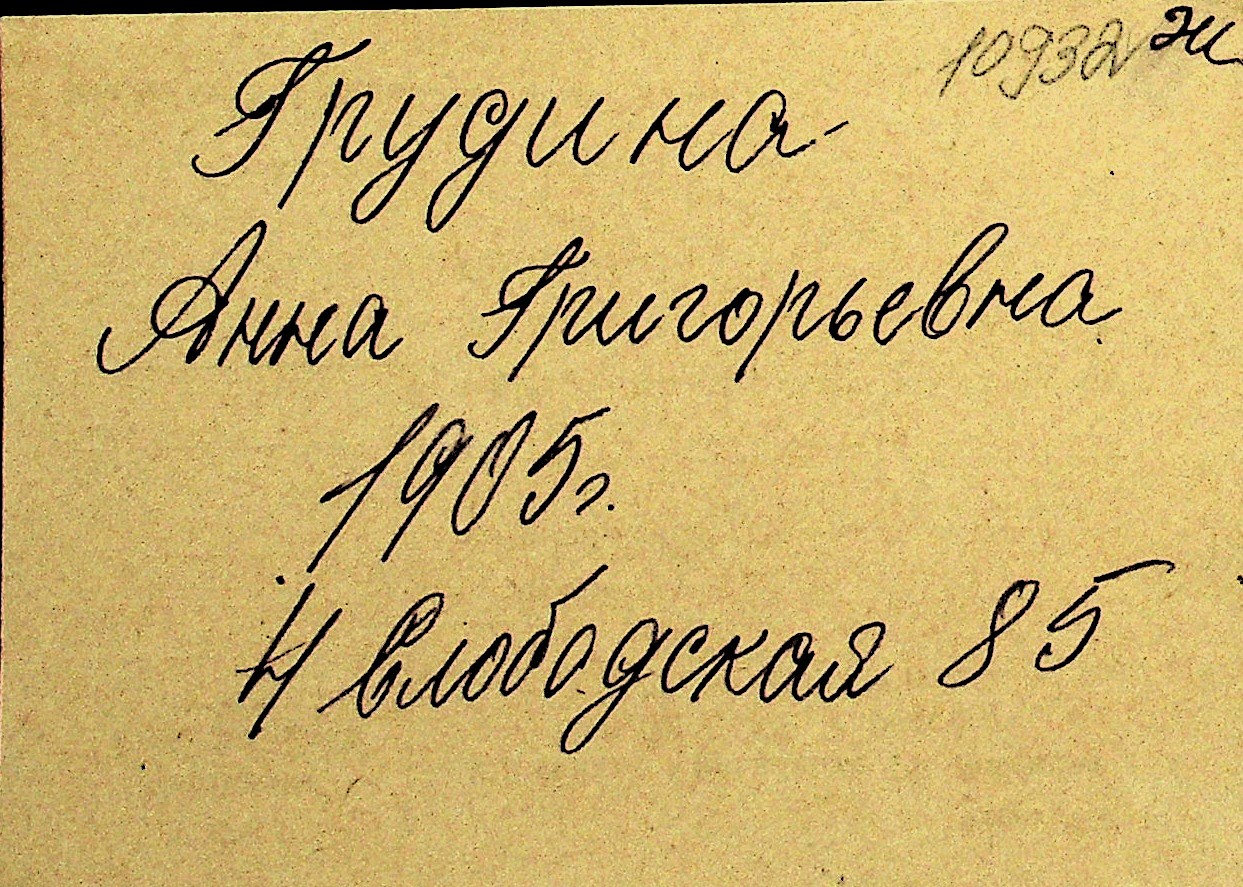 10932 ж
Грудина
Анна Григорьевна
1905г.
4 Слободская 85